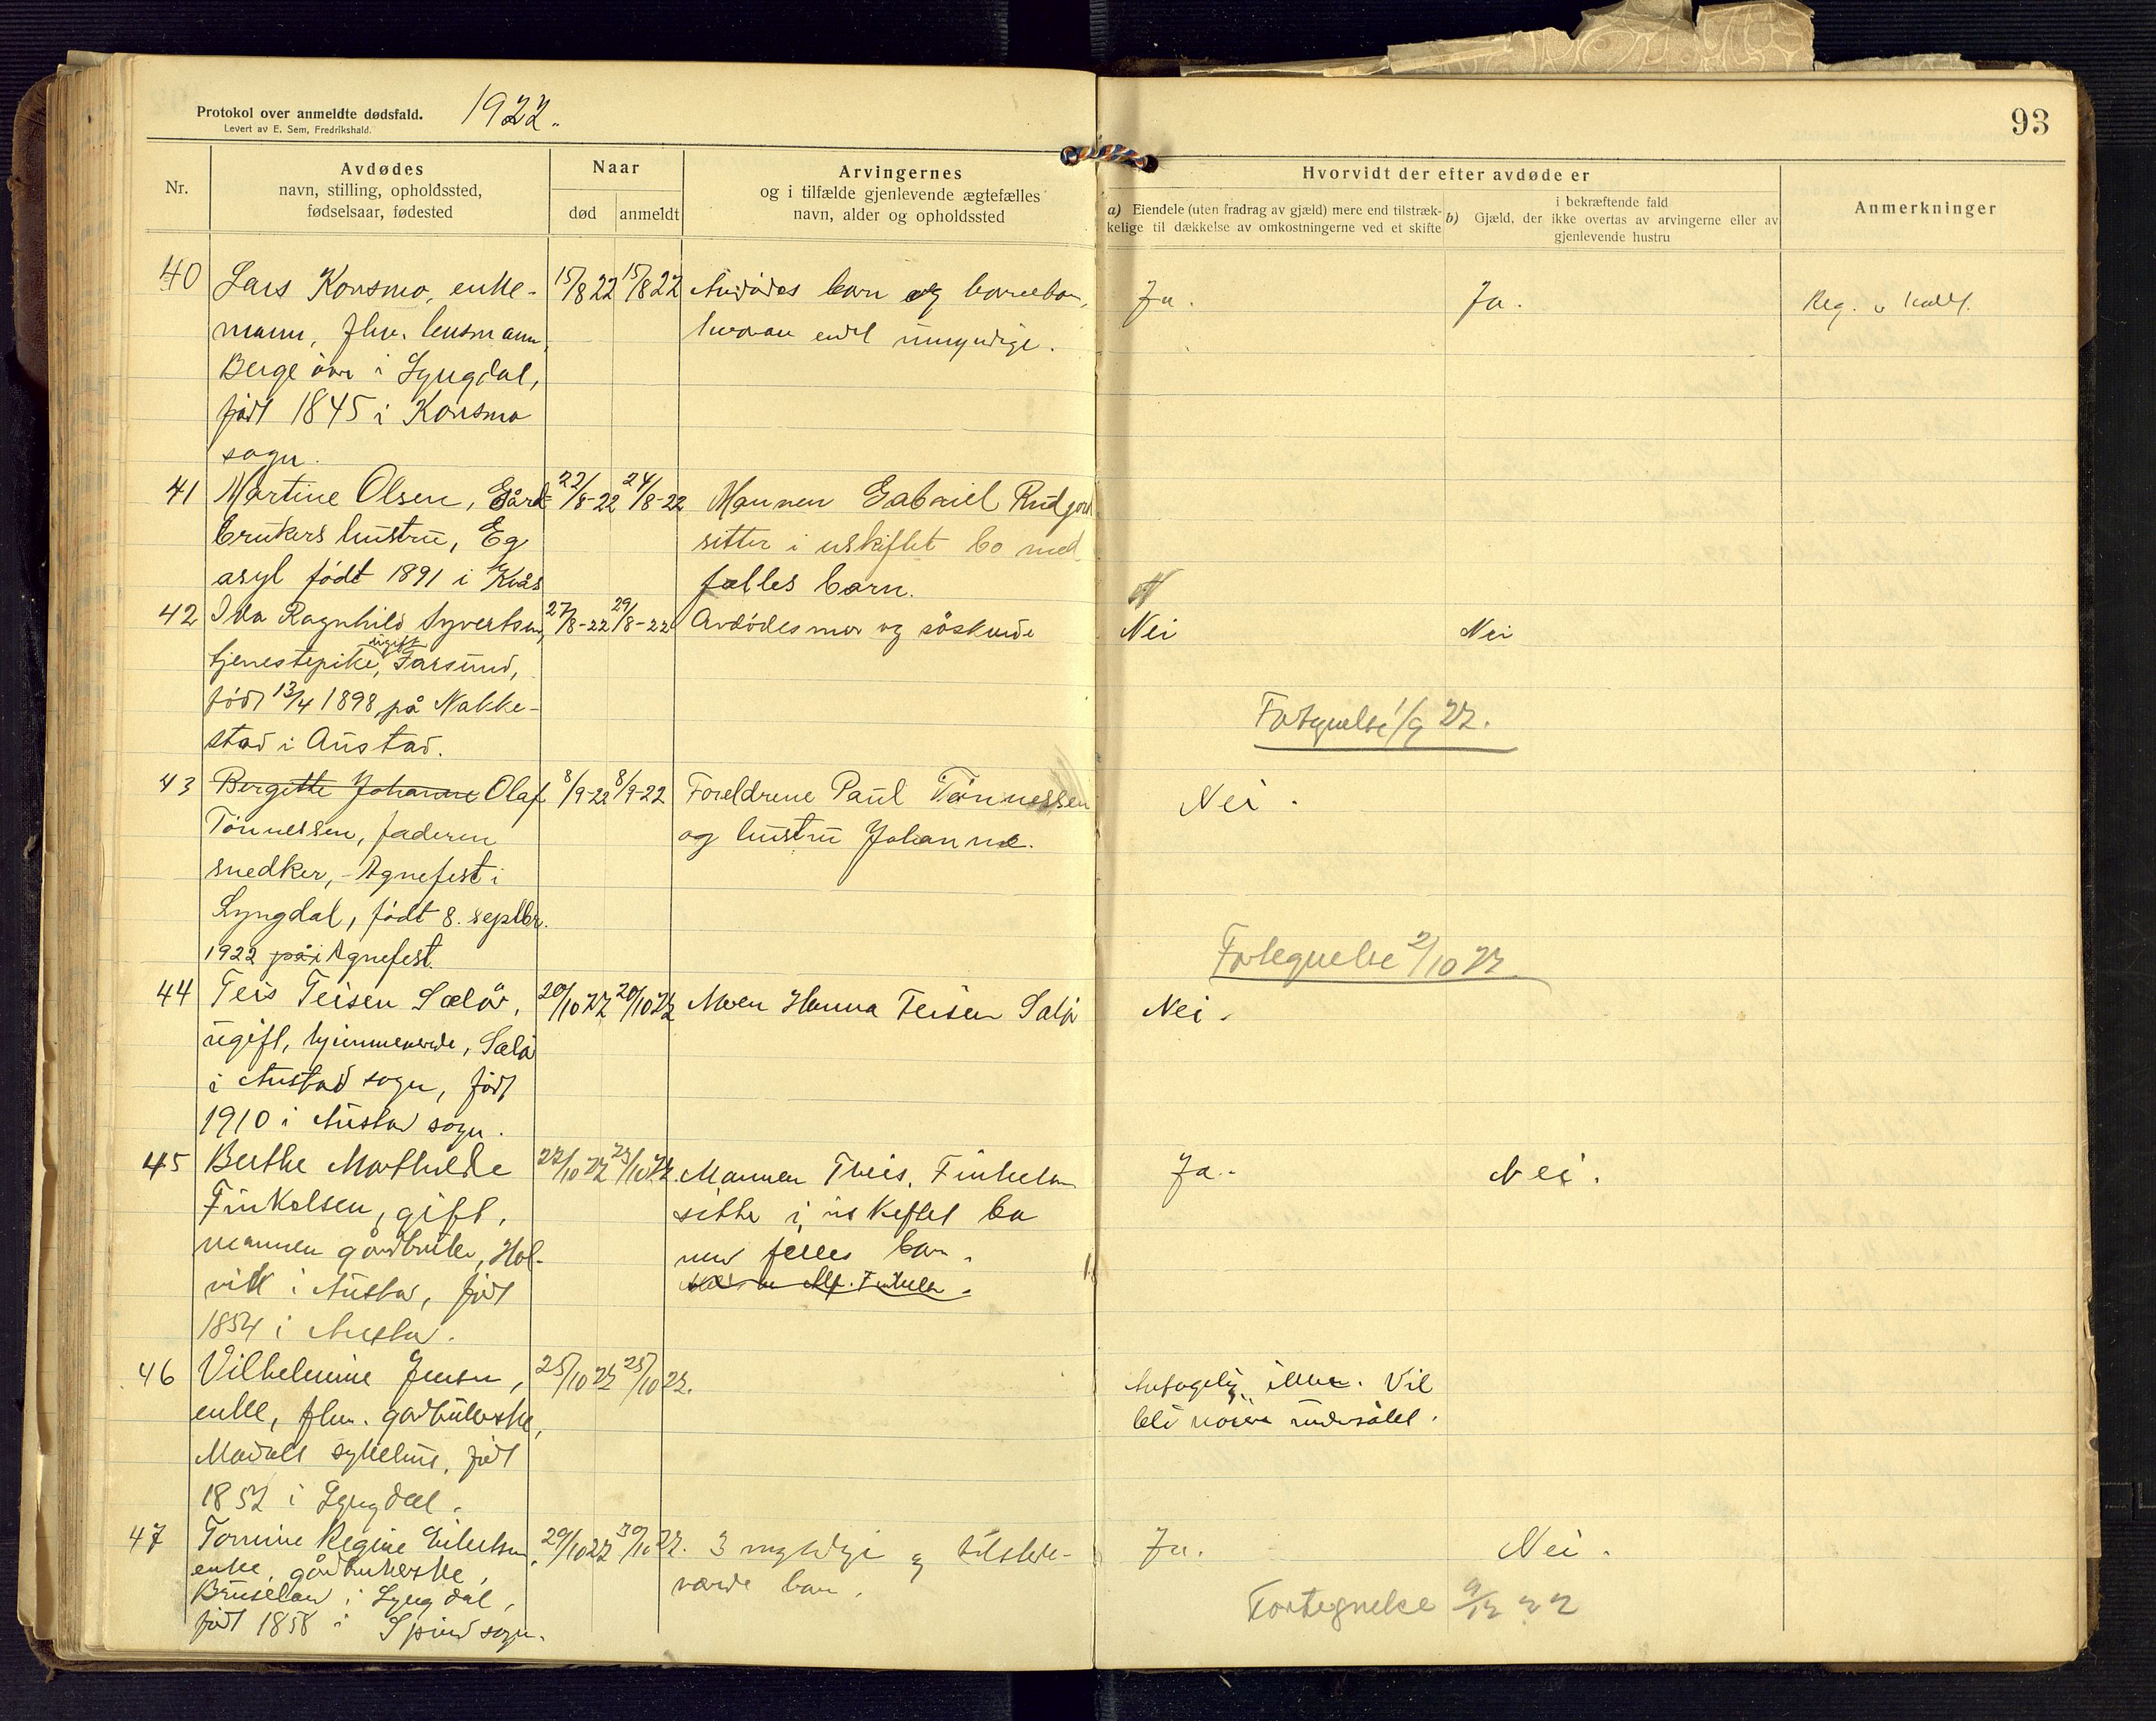 Protokol over anmeldte dødsfald. 1922.
Levert av E. Sem, Fredrikshald.
93
Nr.
Avdødes
navn, stilling, opholdssted,
fødselsaar, fødested
Naar
død anmeldt
Arvingernes
og i tilfælde gjenlevende ægtefælles
navn, alder og opholdssted
Hvorvidt der efter avdøde er
a) Eiendele (uten fradrag av gjæld) mere end tilstræk-
kelige til dækkelse av omkostningerne ved et skifte
i bekræftende fald
b) Gjæld, der ikke overtas av arvingerne eller av
gjenlevende hustru
Anmerkninger
40 Lars Konsmo, enke- 15/8 22 15/8 22 Avdødes barn og barnebarn, Ja. Ja. Reg.
mann, fhv. lensmann, hvorav endel umyndige.
Berge øvre i Lyngdal,
født 1845 i Konsmo
sogn.
41 Martine Olsen, Gård- 22/8-22 24/8-22 Mannen Gabriel
brukers hustru, Eg sitter i uskiftet bo med
asyl født 1891 i Kvås felles barn.
42 Ida Ragnhild Syvertsen, 27/8-22 29/8-22 Avdødes mor og søskende Nei Nei
tjenestepike, ugift Farsund,
født 13/4 1898 på Nakke-
stad i Austad.
Fortegnelse 1/9 22.
43 Bergitte Johanne Olaf 8/9-22 8/9-22 Foreldrene Paul Tønnessen Nei.
Tønnessen, faderen og hustru Johanne.
snedker, - Agnefest i
Lyngdal, født 8. septbr.
1922 på i Agnefest.
Fortegnelse 2/10 22
44 Teis Teisen Sælør, 20/10 22 20/10 22 Moren Hanna Teisen Sælør Nei.
ugift, hjemmeværende, Sælør
i Austad sogn, født
1910 i Austad sogn.
45 Berthe Mathilde 22/10 22 23/10 22. Mannen Theis. Finkelsen Ja. Nei.
Finkelsen, gift, sitter i uskiftet bo
mannen gårdbruker, Hol- med felles barn.
vik i Austad, født
1854 i Austad.
46 Vilhelmine Jensen, 25/10 22 25/10 22. Antagelig ikke. Vil
enke, fhv. gårdbrukerske, bli nøiere undersøkt.
sykehus, født
1852 i Lyngdal.
47 Tomine Regine Eilertsen, 29/10 22 30/10 22. 3 myndige og tilstede- Ja. Nei.
enke, gårdbrukerske, værende barn.
Bruseland i Lyngdal,
født 1858 i Spind sogn.
Fortegnelse 9/12 22